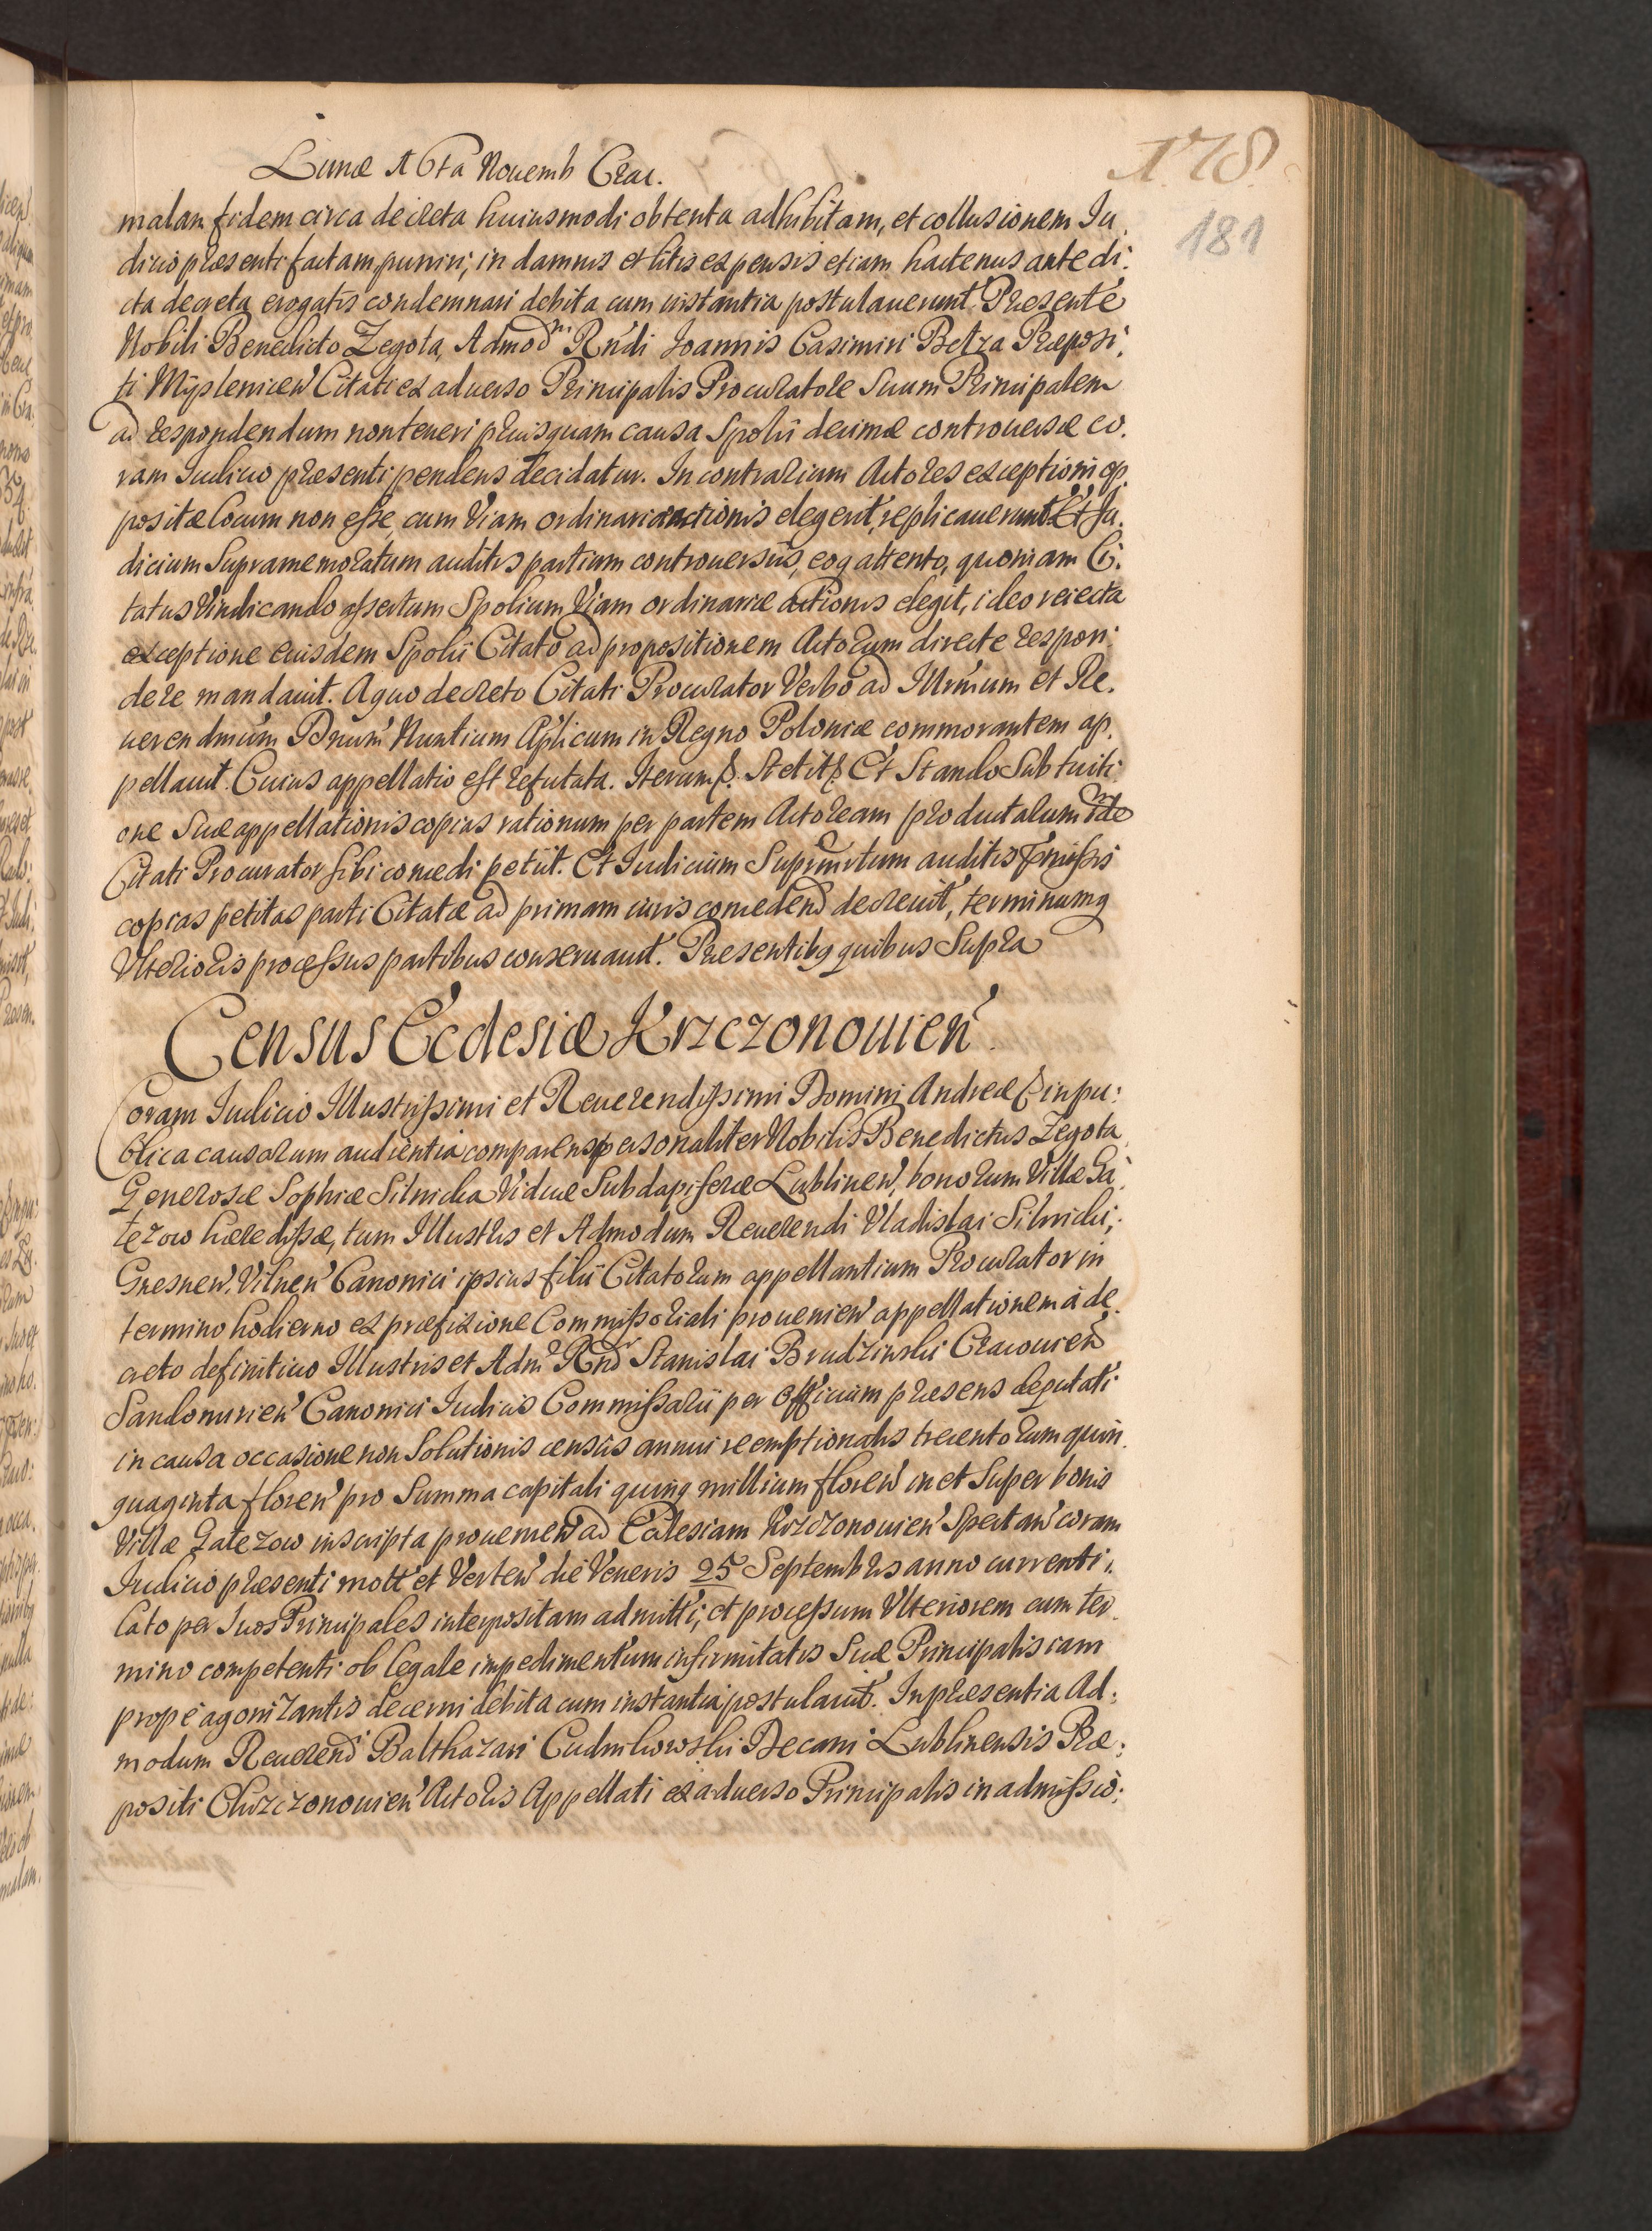 Lunæ Novemb Crac.
178.
181
malam fidem circa decreta huiusmodi obtenta adhibitam, et collusionem Iu.
dicio præsenti factam, puniri, in damnis et litis expensis etiam hactenus ante di:
cta decreta erogatis condemnari debita cum instantia postulaverunt. Præsente
Nobili Benedicto Zegota, Admod Rndi Joannis Casimiri Præposi.
ti Myslenicen Citati ex adverso Principalis Procuratore Suum Principalem
ad respondendum non teneri priusquam causa Spolii decimæ controversæ co.
ram Iudicio præsenti pendens decidatur. In contrarium Actores exceptioni op.
positæ locum non esse, cum Viam ordinariæ actionis elegerit, replicaverunt. Et Iu.
dicium Supramemoratum auditis partium controversiis, eoq attento, quoniam Ci:
tatus Vindicando assertum Spolium Viam ordinariæ actionis elegit, ideo reiecta
exceptione eiusdem Spolii Citato ad propositionem Actorum directe respon:
dere mandavit. A quo decreto Citati Procurator Verbo ad Illrmum et Re.
verendmum Dnum Nuntium Aplicum in Regno Poloniæ commorantem ap.
pellavit. Cuius appellatio est refutata. Iterum &. Stetit & Et Stando Sub tuiti
one Suæ appellationis copias rationum per partem Actoream productarum
Citati Procurator sibi concedi petiit. Et Iudicium auditis
copias petitas parti Citatæ ad primam iuris concedend decrevit, terminumq
Ulterioris processus partibus conservavit. Præsentibq quibus Supra
Census Ecclesiæ Krzczonovien
Coram Iudicio Illustrissimi et Reverendissimi Domini Andreæ & in pu:
blica causarum audientia comparens personaliter Nobilis Benedictus Zegota
Generosæ Sophiæ Silnicka Viduæ Subdapiferæ Lublinen, bonorum Villæ Ga:
tezow hæredissæ, tum Illustris et Admodum Reverendi Vladislai Silnicki,
Gnesnen. Vilnen Canonici ipsius filii Citatorum appellantium Procurator in
termino hodierno ex præfixione Commissoriali provenien appellationem à de.
creto definitivo Illustris et Adm Rnd Stanislai Brudzinski Cracovien
Sandomirien Canonici Iudicis Commissarii per Officium præsens deputati
in causa occasione non Solutionis census annui reemptionalis trecentorum quin.
quaginta floren pro Summa capitali quinq millium floren in et Super bonis
Villæ Gatezow inscripta provenien ad Ecclesiam Krzczonovien Spectan coram
Iudicio præsenti mott et Verten die Veneris 25 Septembris anno currenti
lato per Suos Principales interpositam admitti, et processum Ulteriorem cum ter.
mino competenti ob legale impedimentum infirmitatis Suæ Principalis iam
propè agonizantis decerni debita cum instantia postulavit. In præsentia Ad:
modum Reverend Balthazari Decani Lublinensis Præ:
positi Chrzczonovien Actoris Appellati ex adverso Principalis in admissio: